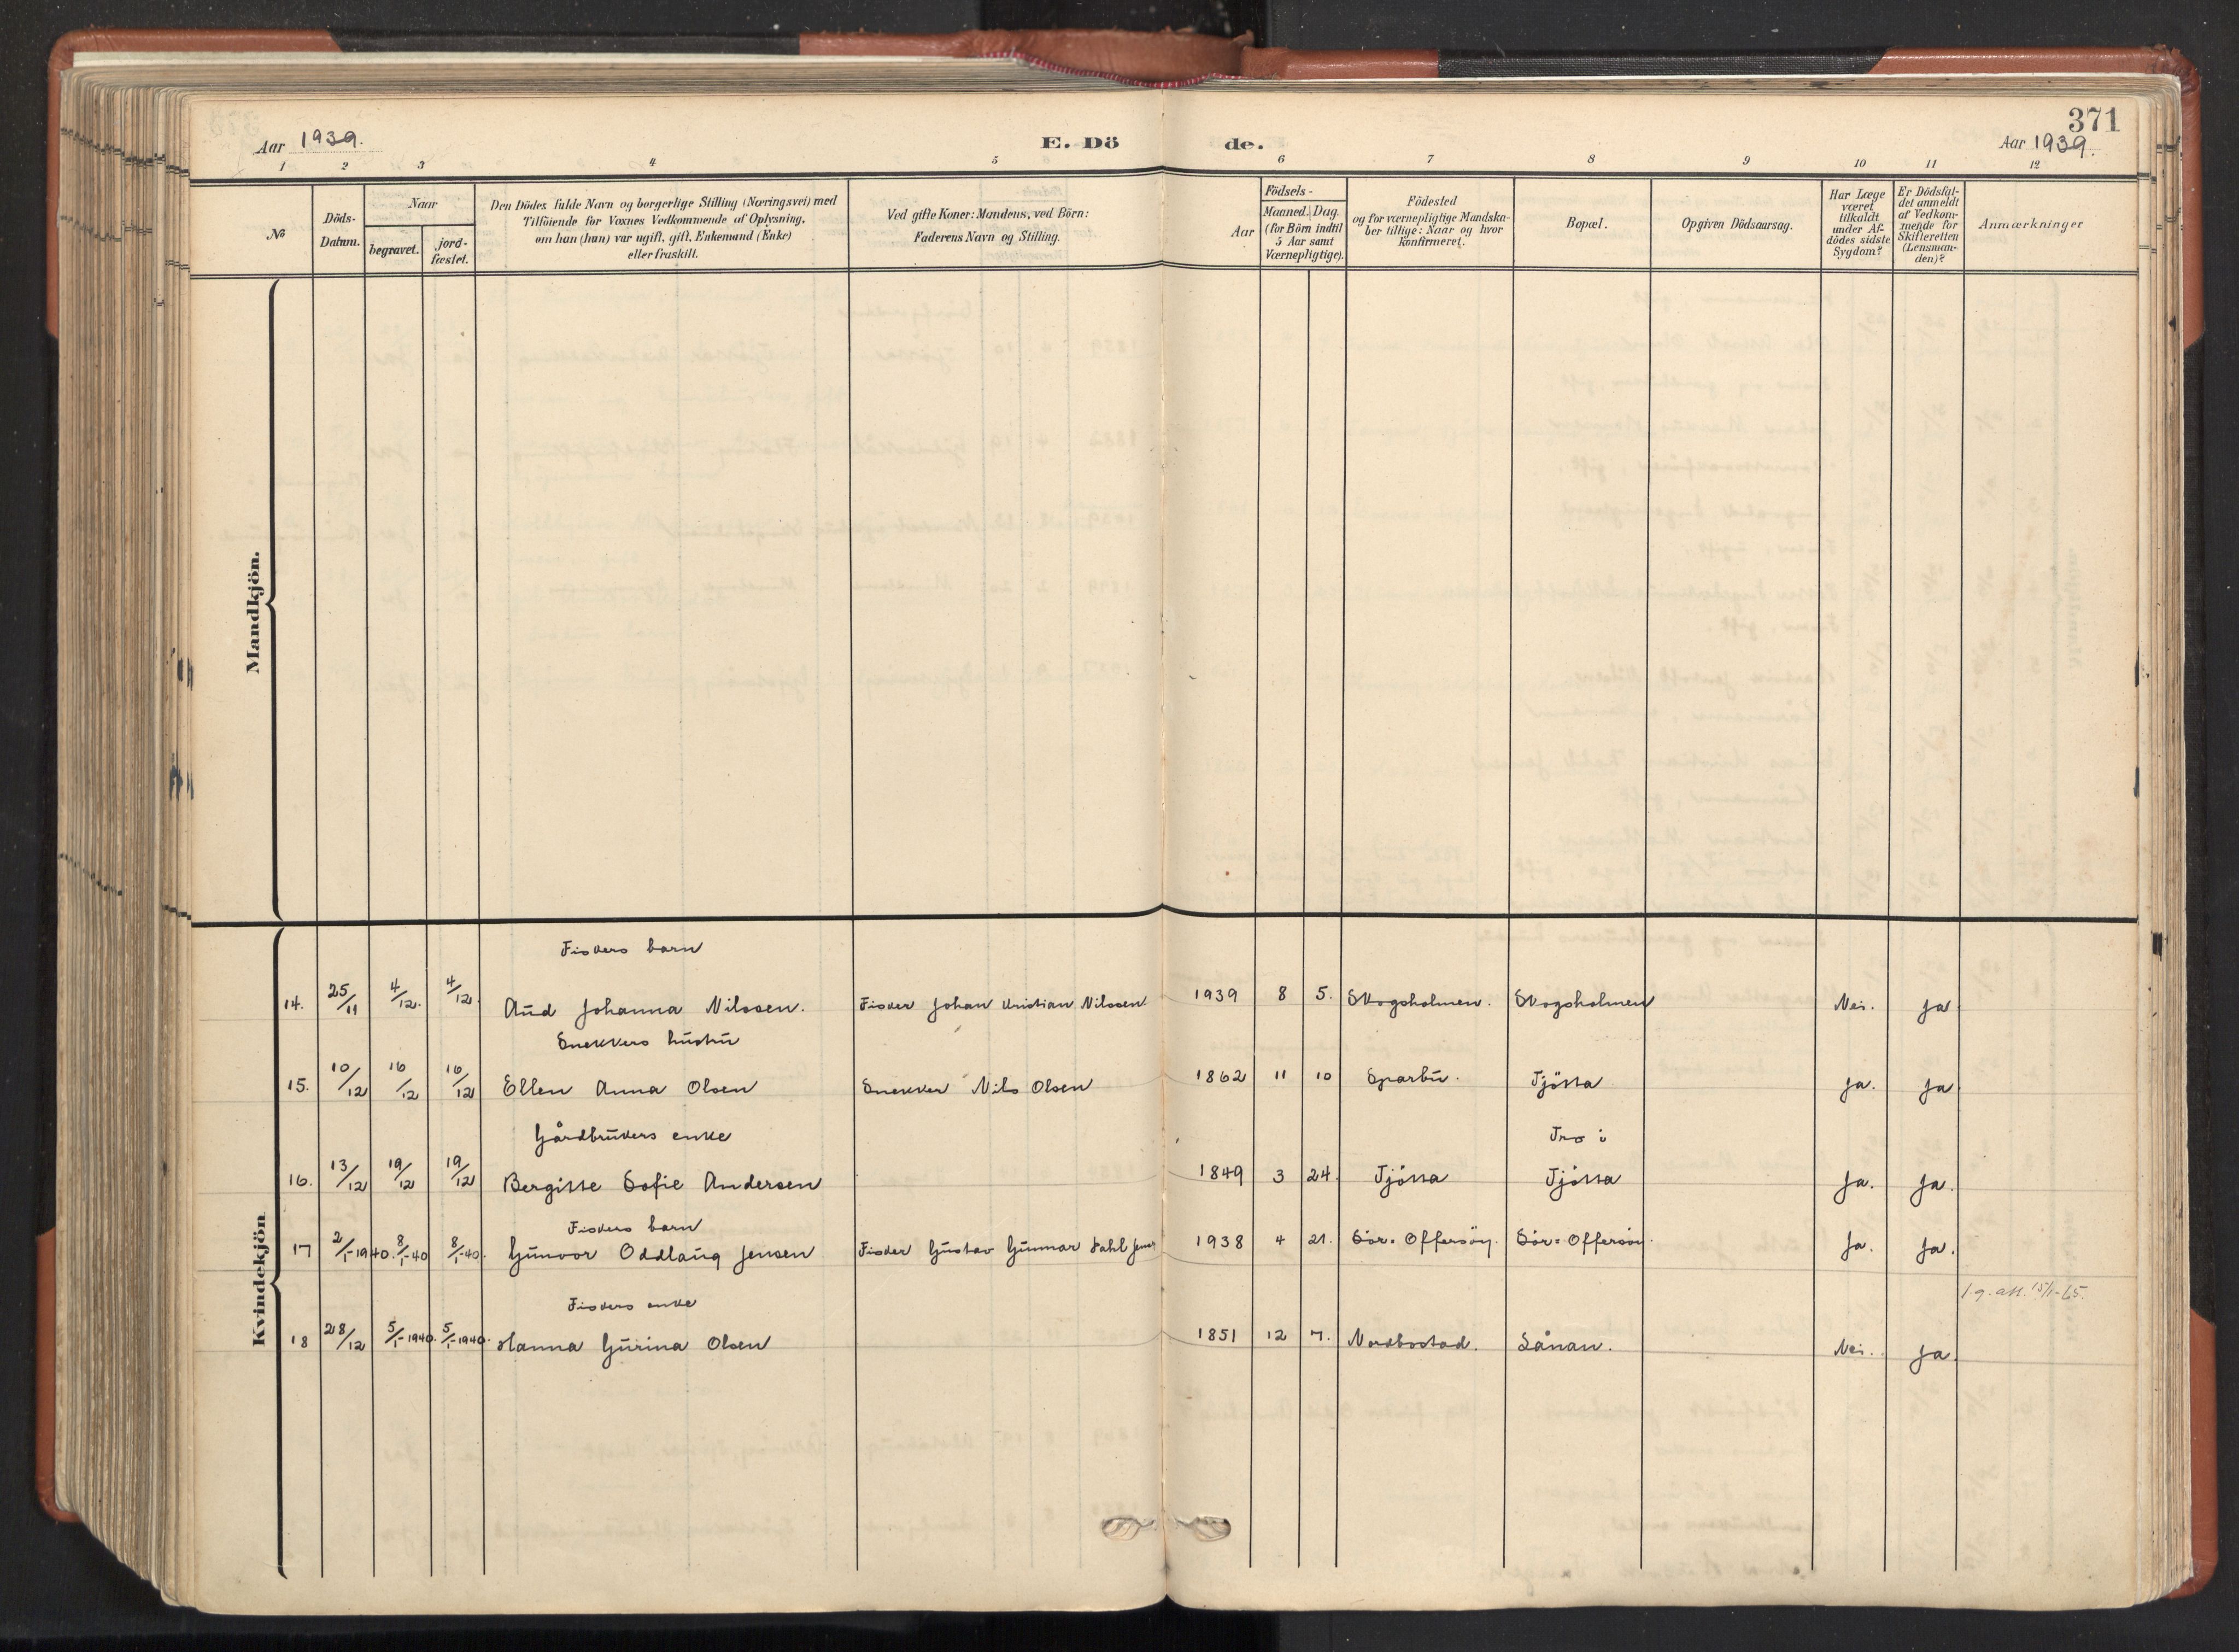 371
Aar 1939.
E. Dö
de.
Aar 1939.
1 2 3 4 5 6 7 8 9 10 11 12
№
Döds-
Datum.
Naar
begravet.
jord-
fæstet.
Den Dödes fulde Navn og borgerlige Stilling (Næringsvei) med
Tilföiende for Voxnes Vedkommende af Oplysning,
om han (hun) var ugift, gift, Enkemand (Enke)
eller fraskilt.
Ved gifte Koner: Mandens, ved Börn:
Faderens Navn og Stilling.
Födsels-
Aar
Maaned. Dag.
(for Börn indtil
5 Aar samt
Værnepligtige).
Födested
og for værnepligtige Mandska-
ber tillige: Naar og hvor
konfirmeret.
Bopæl.
Opgiven Dödsaarsag.
Har Læge
været
tilkaldt
under Af-
dödes sidste
Sygdom?
Er Dödsfal-
det anmeldt
af Vedkom-
mende for
Skifteretten
(Lensman-
den)?
Anmærkninger
Mandkjön.
Kvindekjön
Fiskers barn
14. 25/11 4/12. 4/12. Aud Johanna Nilssen. Fisker Johan Kristian Nilssen 1939 8 5. Skogsholmen. Skogsholmen Nei. Ja.
Snekkers hustru
15. 10/12 16/12 16/12 Ellen Anna Olsen Snekker Nils Olsen 1862 11 10 Sparbu. Tjötta Ja. Ja.
Gårdbrukers enke Tro i
16. 13/12 19/12 19/12 Bergitte Sofie Andersen 1849 3 24. Tjötta Tjötta Ja. Ja.
Fiskers barn
17 2/1-1940. 8/1-40 8/1-40. Gunvor Oddlaug Jensen Fisker Gustav Gunnar Dahl Jensen 1938 4 21. Sör-Offersöy. Sör-Offersöy. Ja. Ja.
Fiskers enke att. 15/1-65.
18 28/12 5/1-1940. 5/1-1940. Hanna Gurina Olsen 1851 12 7. Nordbostad. Lånan. Nei. Ja.